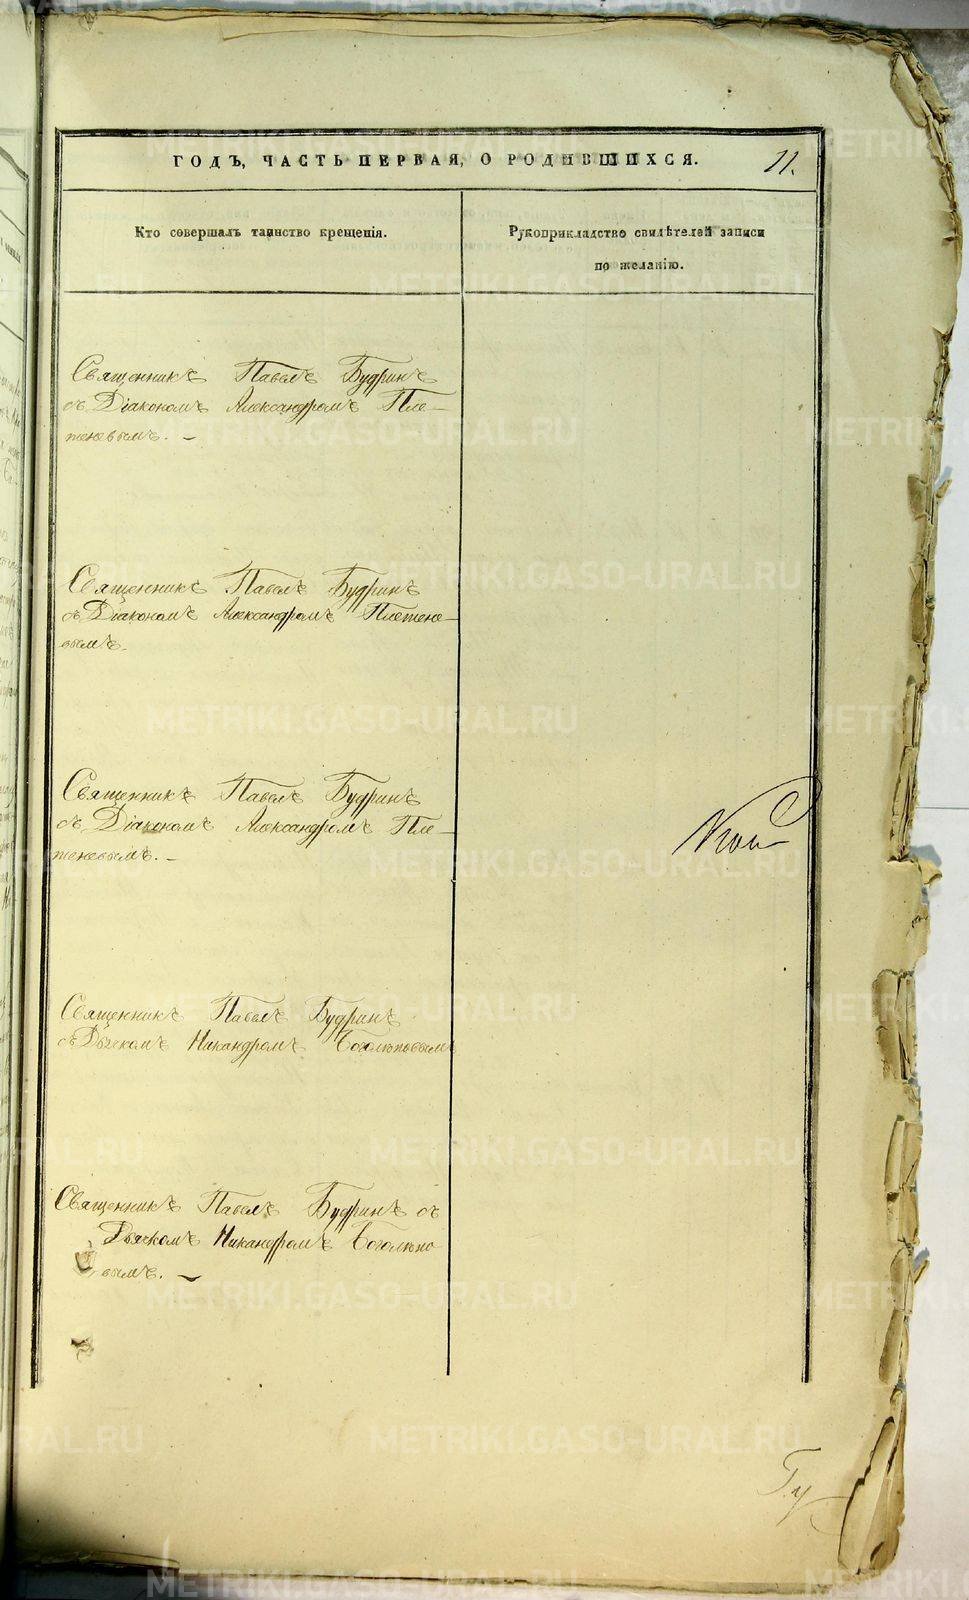 ГОДЪ, ЧАСТЬ ПЕРВАЯ, О РОДИВШИХСЯ.
11.
Кто совершалъ таинство крещенія.
Рукоприкладство свидѣтелей записи
по желанію.
Священникъ Павелъ Будринъ
съ Діакономъ Александромъ Пле-
теневымъ. –
Священникъ Павелъ Будринъ
съ Діакономъ Александромъ Плетене-
вымъ.
Священникъ Павелъ Будринъ
съ Діакономъ Александромъ Пле-
теневымъ. –
Священникъ Павелъ Будринъ
съ Дьячкомъ Никандромъ Боголюповымъ
Священникъ Павелъ Будринъ съ
Дьячкомъ Никандромъ Боголюпо-
вымъ. –
METRIKI.GASO-URAL.RU